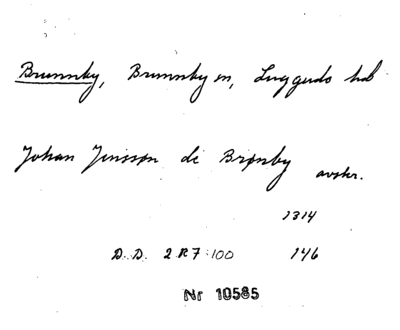 Brunnby, Brunnby sn, Luggude hd
Johan Jenssøn de Brønby avskr.
1314
D. D. 2 R 7:100 146
Nr 10585